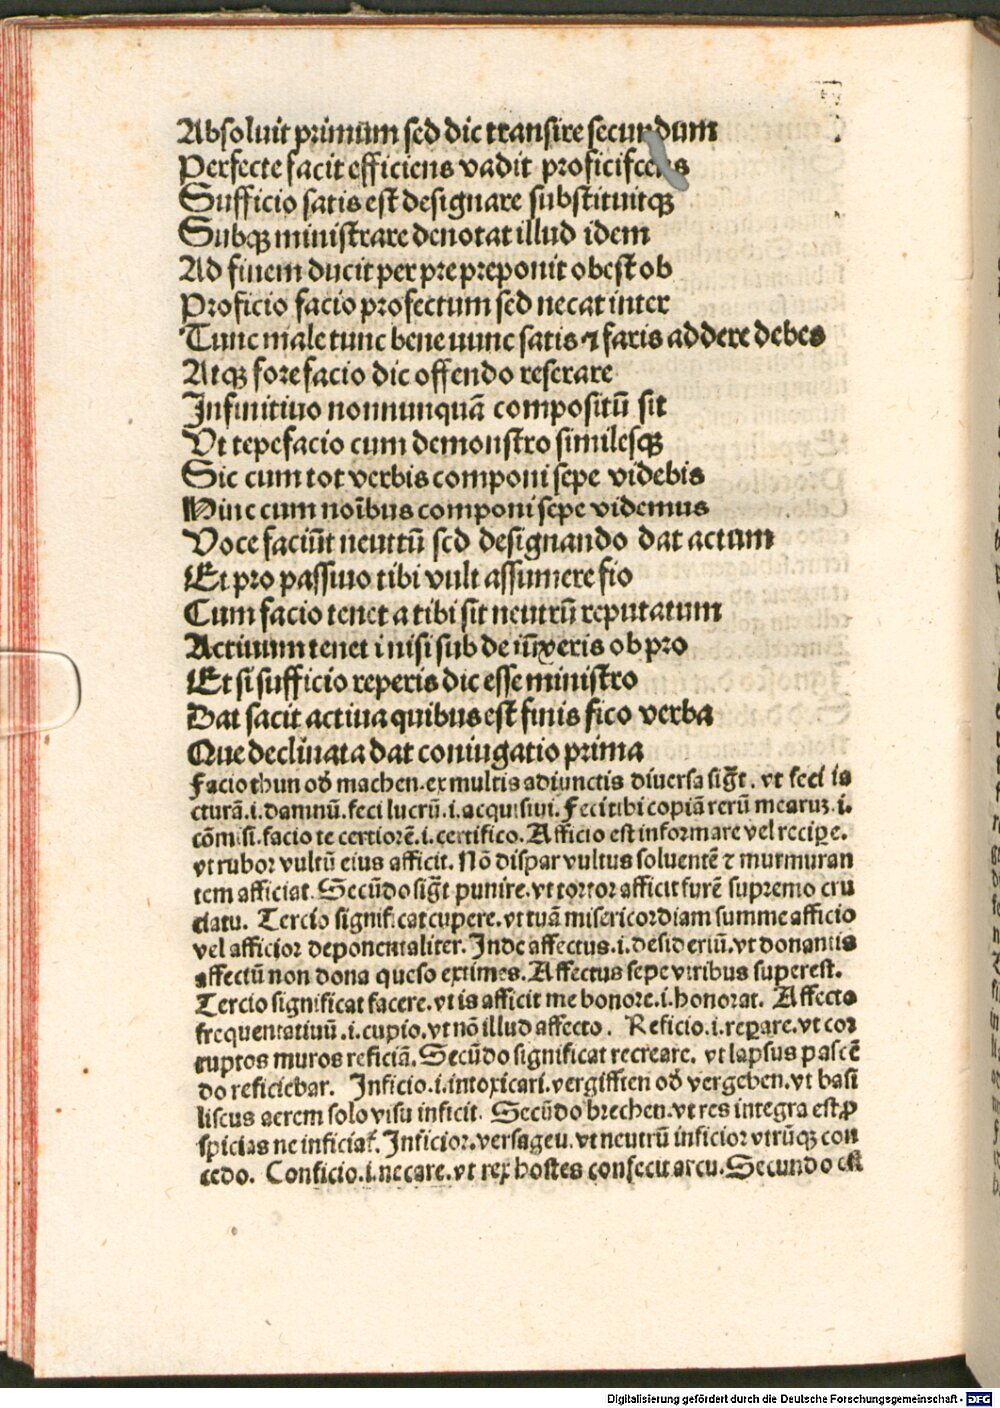 Absoluit primum sed dic transire secundum
Perfecte facit efficiens vadit proficiscens
Sufficio satis est designare substituitqꝫ
Subqꝫ ministrare denotat illud idem
Ad finem ducit per pre preponit obest ob
Proficio facio profectum sed necat inter
Tunc male tunc bene nunc satis ⁊ faris addere debes
Atqꝫ fore facio dic offendo reserare
Infinitiuo nonnunquā compositū sit
Vt tepefacio cum demonstro similesqꝫ
Sic cum tot verbis componi sepe videbis
Hinc cum noībus componi sepe videmus
Voce faciūt neutrū sed designando dat actum
Et pro passiuo tibi vult assumere fio
Cum facio tenet a tibi sit neutrū reputatum
Actiuum tenet i nisi sub de iūxeris ob pro
Et si sufficio reperis dic esse ministro
Dat facit actiua quibus est finis fico verba
Que declinata dat coniugatio prima
Facio thun oď machen. ex multis adiunctis diuersa sigt̄. vt feci ia
cturā.i.damnū. feci lucrū.i.acquisiui. Feci tibi copiā rerū mearuꝫ.i.
cōmisi. facio te certiorē.i.certifico. Afficio est informare vel reciꝑe.
vt rubor vultū eius afficit. Nō dispar vultus soluentē ⁊ murmuran
tem afficiat. Secūdo sigt̄ punire. vt tortor afficit furē supremo cru
ciatu. Tercio significat cupere. vt tuā misericordiam summe afficio
vel afficior deponentaliter. Inde affectus.i.desideriū. vt donantis
affectū non dona queso extimes. Affectus sepe viribus superest.
Tercio significat facere. vt is afficit me honore.i.honorat. Affecto
frequentatiuū.i.cupio. vt nō illud affecto. Reficio.i.reꝑare. vt cor
ruptos muros reficiā. Secūdo significat recreare. vt lapsus pascē
do reficiebar. Inficio.i.intoxicari. vergifften oď vergeben. vt basi
liscus aerem solo visu inficit. Secūdo brechen. vt res integra est ꝓ
spicias ne inficiat᷑. Inficior. versagen. vt neutrū inficior vtrūqꝫ con
cedo. Conficio.i.necare. vt rex hostes confecit arcu. Secundo est
Digitalisierung gefördert durch die Deutsche Forschungsgemeinschaft - DFG